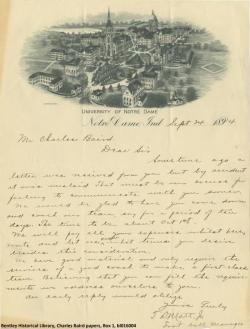 UNIVERSITY OF NOTRE DAME
Notre Dame, Ind. Sept 24, 1894
Mr Charles Baird
Dear Sir
Sometime ago a
letter was received from you but by accident
it was mislaid that must be my excuse for
failing to communicate with you sooner.
We would be glad to have you come
and coach our team, for a period of ten
days. The time to be about Oct 1st
We will pay all your expenses whilst here,
route and let us know what terms you desire
besides this consideration.
We have good material and only require the
services of a good coach to make a first class
team. Believing that you can fill the require-
ments we address ourselves to you.
An early reply would oblige
Yours Truly
Foot Ball Manager
Bentley Historical Library, Charles Baird papers, Box 1, bl016004